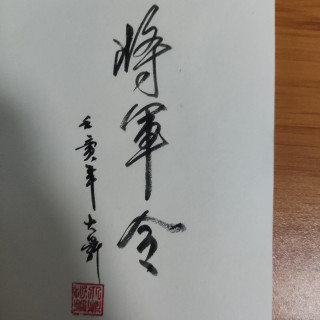 將軍令
壬寅年大